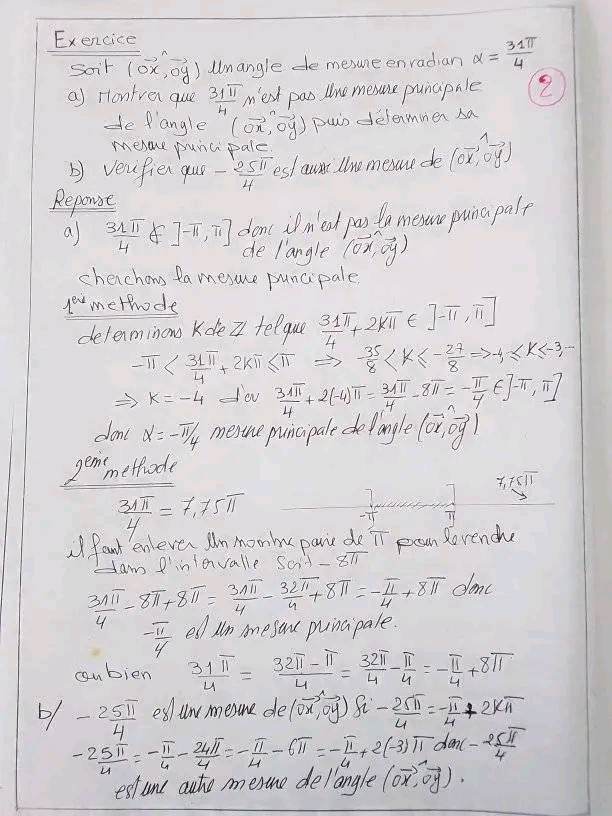 Exercice
Soit (ox⃗^,oy⃗) Un angle de mesure en radian α = 31π/4
2
a) Montrer que 31π/4 n'est pas Une mesure principale
de l'angle (ox⃗^,oy⃗) puis déterminer sa
mesure principale.
b) Verifier que -25π/4 est aussi Une mesure de (ox⃗^,oy⃗)
Réponse
a) 31π/4 ∉ ]-π,π] donc il n'est pas la mesure principale
de l'angle (ox⃗^,oy⃗)
cherchons la mesure principale.
1ère methode
determinons K de Z tel que 31π/4 + 2Kπ ∈ ]-π,π]
-π < 31π/4 + 2Kπ ≤ π ⇒ -35/8 < K ≤ -27/8 ⇒ -4,- ≤ K ≤ -3,-
⇒ K = -4 d'où 31π/4 + 2(-4)π = 31π/4 - 8π = -π/4 ∈ ]-π,π]
donc α = -π/4 mesure principale de l'angle (ox⃗^,oy⃗)
2eme methode
31π/4 = 7,75π
-π π 7,75π
il faut enlever Un nombre paire de π pour le rendre
dans l'intervalle soit - 8π
31π/4 - 8π + 8π = 31π/4 - 32π/4 + 8π = -π/4 + 8π donc
-π/4 est un mesure principale.
ou bien 31π/4 = 32π - π/4 = 32π/4 - π/4 = -π/4 + 8π
b/ -25π/4 est une mesure de (ox⃗^,oy⃗) Si -25π/4 = -π/4 + 2Kπ
-25π/4 = -π/4 - 24π/4 = -π/4 - 6π = -π/4 + 2(-3)π donc -25π/4
est une autre mesure de l'angle (ox⃗^,oy⃗).